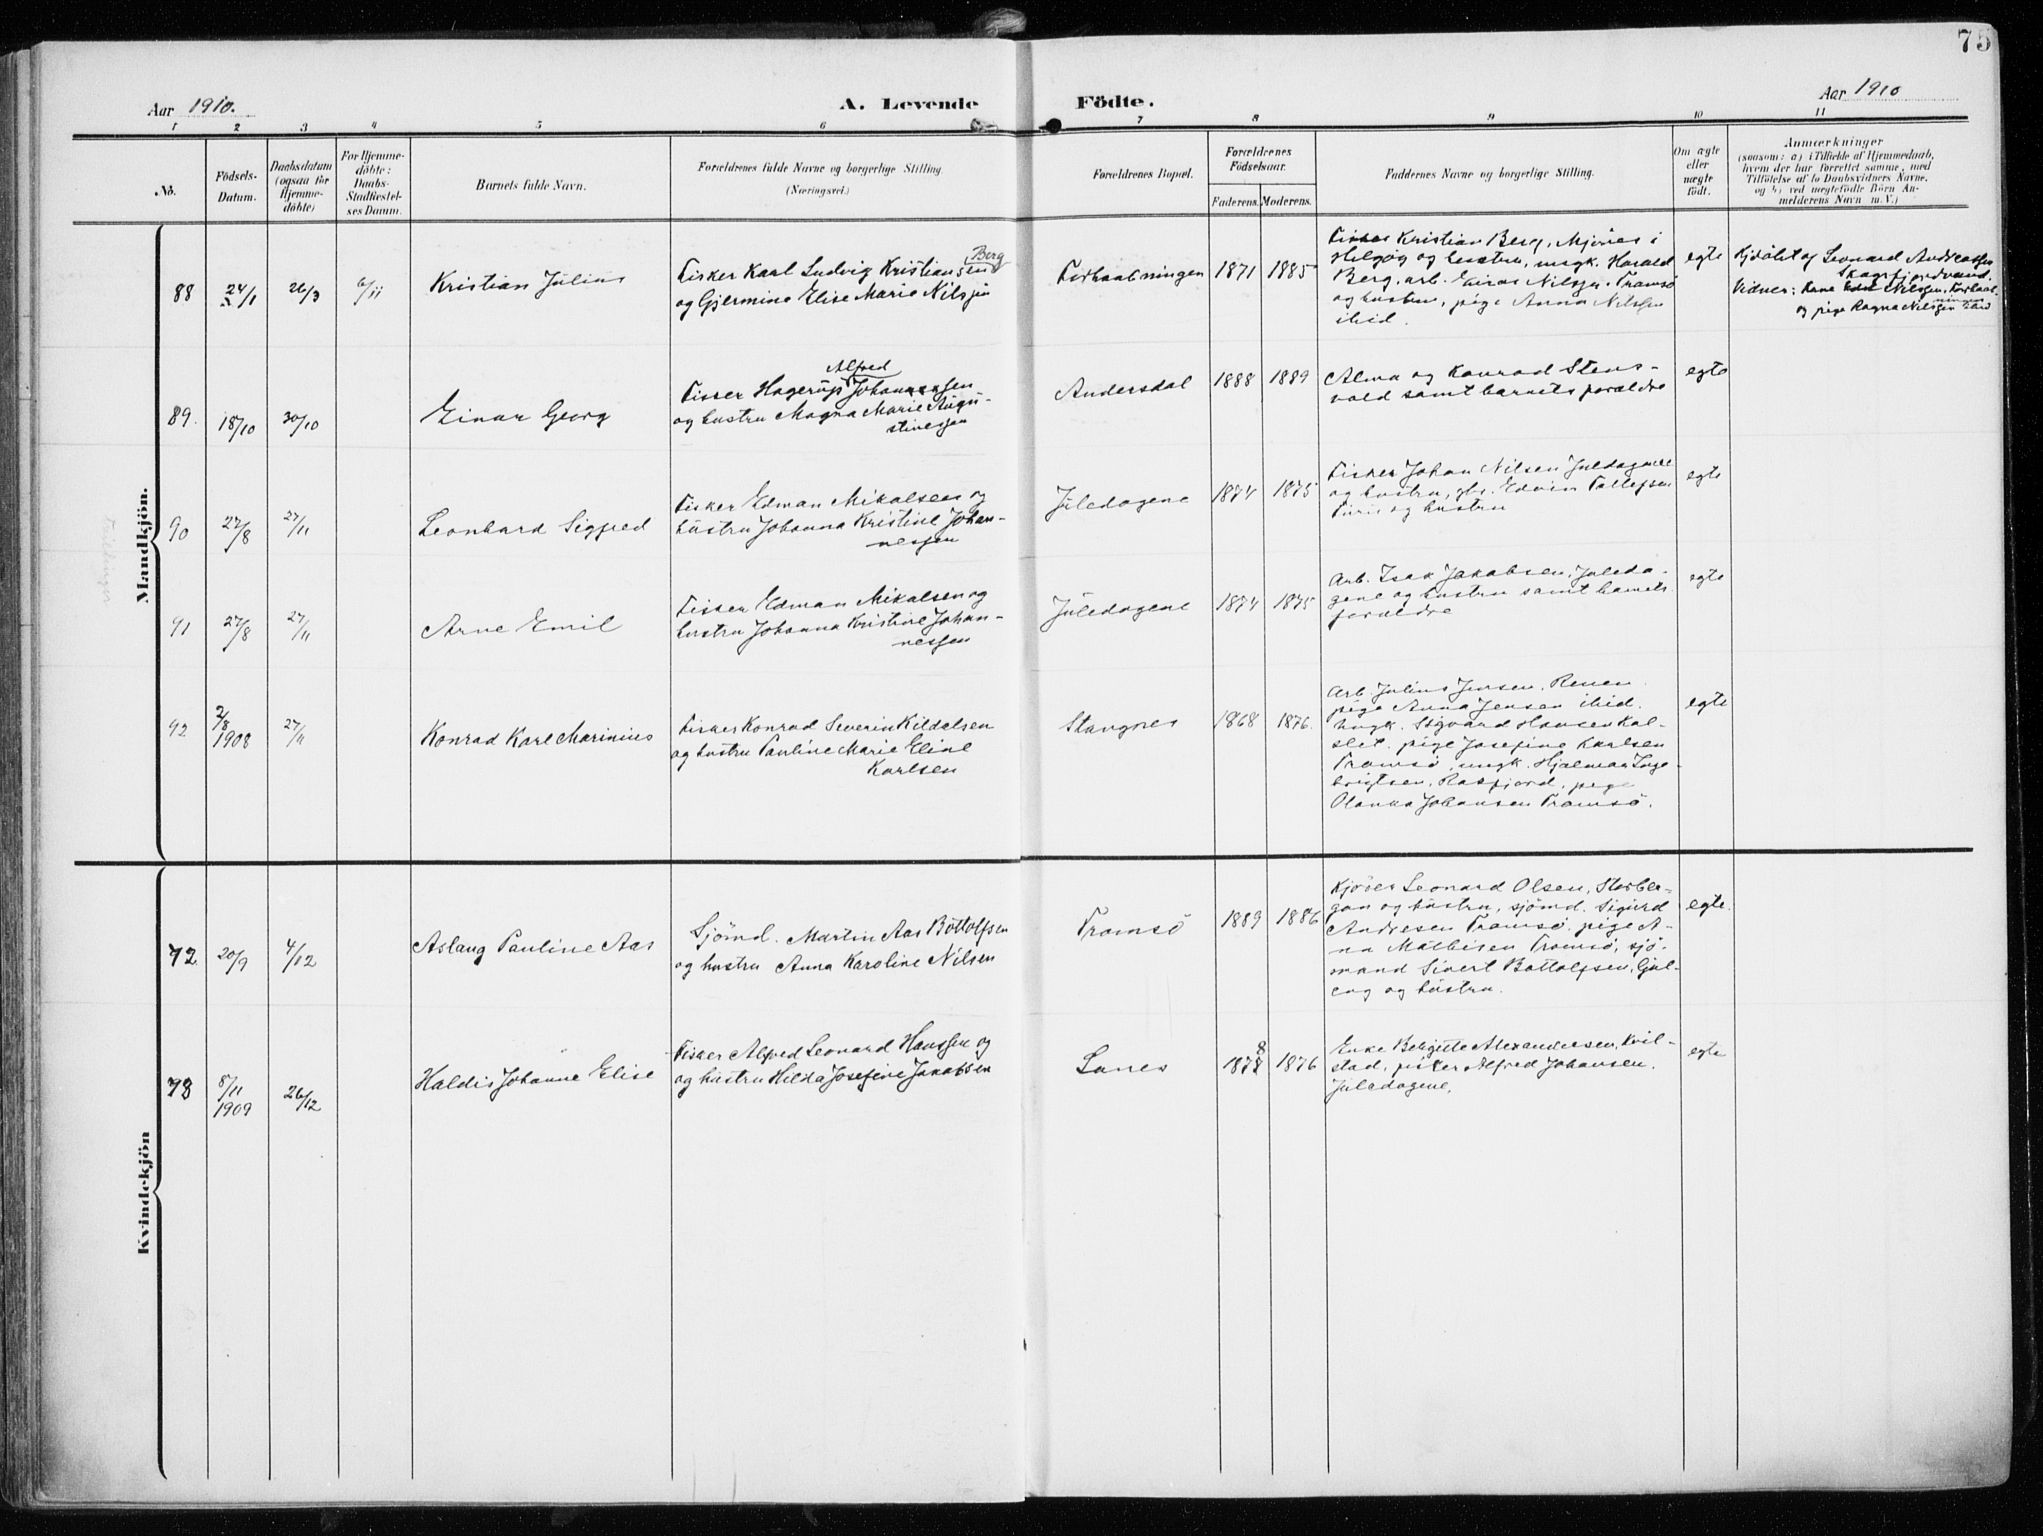 75
Aar 1910.
A. Levende Födte.
Aar 1910
1 2 3 4 5 6 7 8 9 10 11
No.
Födsels-
Datum.
Daabsdatum
(ogsaa for
Hjemme-
döbte)
For Hjemme-
döbte:
Daabs-
Stadfæstel-
ses Datum.
Barnets fulde Navn.
Forældrenes fulde Navne og borgerlige Stilling
(Næringsvei.)
Forældrenes Bopæl.
Forældrenes
Födselsaar.
Faderens. Moderens.
Faddernes Navne og borgerlige Stilling.
Om ægte
eller
uægte
født.
Anmærkninger
(saasom: a) i Tilfælde af Hjemmedaab,
hvem der har forrettet samme, med
Tilföielse af to Daabsvidners Navne,
og b) ved uægtefödte Börn An-
melderens Navn m. V.)
Mandkjön.
88
24/1
26/3
6/11
Kristian Julius
Berg
Fisker Karl Ludvig Kristiansen
og Gjermine Elise Marie Nilsen
Forhaabningen
1871
1885
Fisker Kristian Berg, Mjönes i
Helgöy og hustru, ungk. Harald
Berg, arb. Einar Nilsen, Tromsö
og hustru, pige Anna Nilsen
ibid.
egte
Hjdöbt af Leonard Andreassen
Skogsfjordvand.
Vidner: Nilsen, Forhaab-
ningen
og pige Ragna Nilssen ibid
89.
18/10
30/10
Einar Georg
Alfred
Fisker Hagerup Johannessen
og hustru Magna Marie Augu-
stinessen
Andersdal
1888
1889
Alma og Konrad Stens-
vold samt barnets forældre
egte
90
27/8
27/11
Leonhard Sigfred
Fisker Edman Mikalsen og
hustru Johanna Kristine Johan-
nessen
Juledagene
1874
1875
Fisker Johan Nilsen Juledagene
og hustru, gbr. Edvin Tollefsen
og hustru
egte
91
27/8
27/11
Arne Emil
Fisker Edman Mikalsen og
hustru Johanna Kristine Johan-
nessen
Juledagene
1874
1875
Arb. Isak Jakobsen, Juleda-
gene og hustru samt barnets
forældre
egte
92
2/8
1908
27/11
Konrad Karl Marinius
Fisker Konrad Severin Kildalsen
og hustru Pauline Marie Eline
Karlsen
Stangnes
1868
1876.
Arb. Julius Jensen, Renen
pige Anna Jensen ibid.
ungk. Sigvard Hansen Kal-
slet. pige Josefine Karlsen
Tromsö, ungk. Hjalmar Inge-
brigtsen, pige
Johansen Tromsö.
egte
Kvindekjön
72
20/9
4/12
Aslaug Pauline Aas
Sjömd. Martin Aas Bottolfsen
og hustru Anna Karoline Nilsen
Tromsö
1889
1886
Kjörer Leonard Olsen, Storber-
gan og hustru, sjömd. Sigurd
Andresen Tromsö. pige A-
na Mathisen Tromsö, sjö-
mand Sivert Bottolfsen,
og hustru.
egte.
73
8/11
1909
26/12
Haldis Johanne Elise
Fisker Alfred Leonard Hanssen og
og hustru Hilda Josefine Jakobsen
Lanes
8
1877
1876
Enke Alexandersen, Kvil-
stad, fisker Alfred Johansen.
Juledagene.
egte